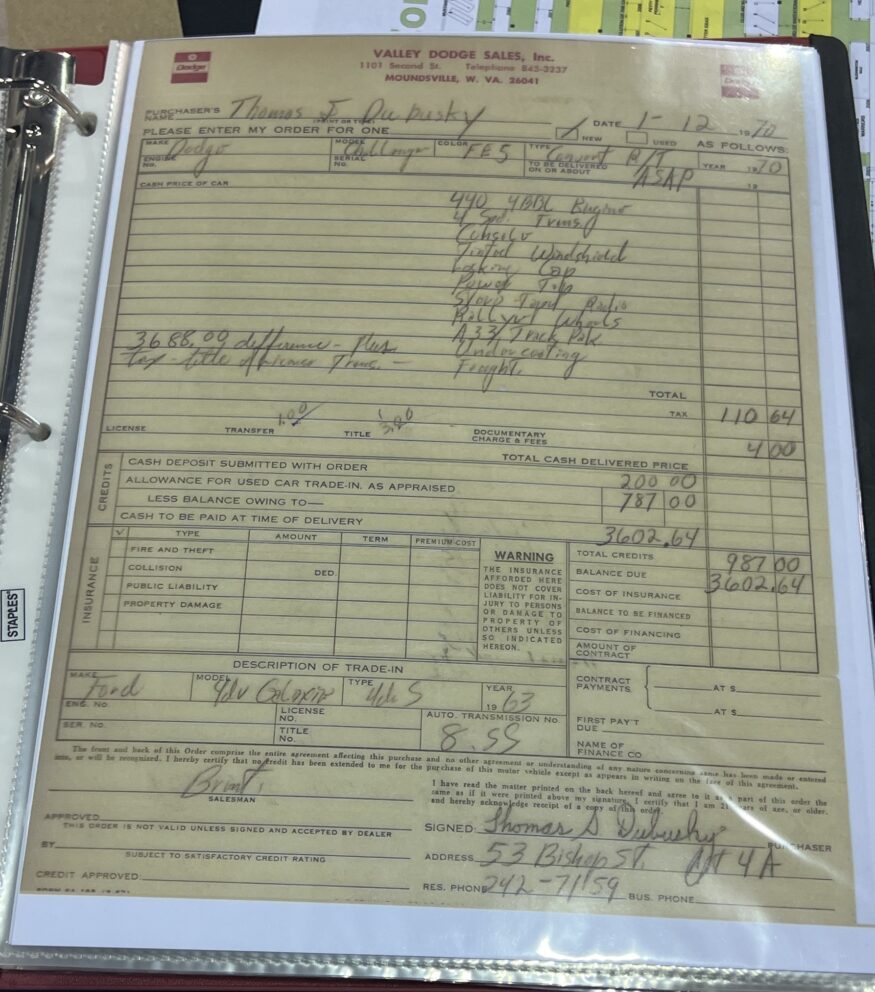 Dodge
VALLEY DODGE SALES, Inc.
1101 Second St. Telephone 845-3237
MOUNDSVILLE, W. VA. 26041
Dodge
PURCHASER'S NAME Thomas J. Dubusky DATE 1-12 1970
(PRINT OR TYPE)
PLEASE ENTER MY ORDER FOR ONE NEW USED AS FOLLOWS:
MAKE Dodge MODEL Challenger COLOR FE5 TYPE Convert R/T YEAR 1970
ENGINE NO. SERIAL NO. TO BE DELIVERED ON OR ABOUT ASAP 19
CASH PRICE OF CAR
440 4BBL Engine
4 Spd. Trans.
Console
Tinted Windshield
Locking Cap
Power Top
Radio
Wheels
A33 Track Pak
3688.00 difference - Plus
Undercoating
tax - title Trans. -
TOTAL
TAX 110 64
LICENSE TRANSFER 1.00 TITLE DOCUMENTARY CHARGE & FEES
4 00
TOTAL CASH DELIVERED PRICE
CREDITS
CASH DEPOSIT SUBMITTED WITH ORDER 200 00
ALLOWANCE FOR USED CAR TRADE-IN, AS APPRAISED 787 00
LESS BALANCE OWING TO
CASH TO BE PAID AT TIME OF DELIVERY 3602.64
TOTAL CREDITS 987 00
INSURANCE
TYPE AMOUNT TERM PREMIUM COST
FIRE AND THEFT
COLLISION DED.
PUBLIC LIABILITY
PROPERTY DAMAGE
WARNING
THE INSURANCE
AFFORDED HERE
DOES NOT COVER
LIABILITY FOR IN-
JURY TO PERSONS
OR DAMAGE TO
PROPERTY OF
OTHERS UNLESS
SO INDICATED
HEREON.
BALANCE DUE 3602.64
COST OF INSURANCE
BALANCE TO BE FINANCED
COST OF FINANCING
AMOUNT OF CONTRACT
DESCRIPTION OF TRADE-IN
MAKE Ford MODEL 4dr Galaxie TYPE YEAR 1963
ENG. NO. LICENSE NO. AUTO. TRANSMISSION NO.
SER NO. TITLE NO. 8.55
CONTRACT PAYMENTS AT $
AT $
FIRST PAY'T DUE
NAME OF FINANCE CO
The front and back of this Order comprise the entire agreement affecting this purchase and no other agreement or understanding of any nature concerning same has been made or entered
into, or will be recognized. I hereby certify that no credit has been extended to me for the purchase of this motor vehicle except as appears in writing on the face of this agreement.
I have read the matter printed on the back hereof and agree to it as a part of this order the
same as if it were printed above my signature. I certify that I am 21 years of age, or older,
and hereby acknowledge receipt of a copy of this order.
SALESMAN
APPROVED
THIS ORDER IS NOT VALID UNLESS SIGNED AND ACCEPTED BY DEALER
SIGNED: Thomas J Dubusky PURCHASER
BY
SUBJECT TO SATISFACTORY CREDIT RATING
ADDRESS 53 Bishop St. Apt 4A
CREDIT APPROVED:
RES. PHONE 242-7159 BUS. PHONE
STAPLES